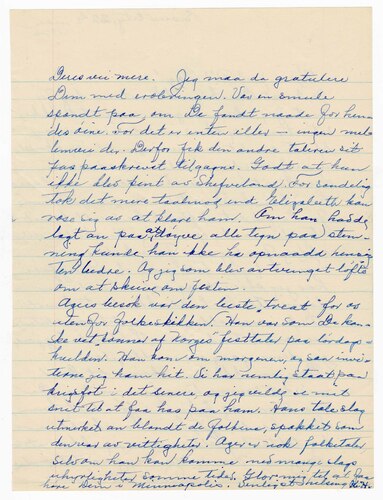 Deres vei mere. Jeg maa da gratulere
Dem med erobringen. Var en smule
spændt paa, om De fandt naade for hen-
des øine. For det er enten eller — ingen mel-
lemvei der. Derfor fik den anden taleren sit
pas paaskrevet tilgagns. Godt at hun
ikke blev pent av Skefveland. For sandelig
tok det mere taalmod end Elizabeth kan
rose sig av at klare ham. Om han hadde
lagt an paa at drive alle tegn paa stem-
ning kunde han ikke ha opnaadd hensig-
ten bedre. Og jeg som blev avtvunget løfte
om at skrive om festen.
Agers besøk var den beste "treat" for os
uten for folkeskikken. Han var som De kan-
ske vet Sønner af Norges festtaler paa lørdags-
kvelden. Han kom om morgenen, og saa invi-
terte jeg ham hit. Vi har nemlig staat paa
krigsfot i det senere og jeg vilde se mit
snit til at faa has paa ham. Hans tale slog
utmerket an blandt de folkene, spækket som
den var av vittigheter. Ager er nok folketaler
selv om han kan komme med mange slags
uhyrligheter somme tider. Glor mig til at faa
høre Dem i Minneapolis. Venligst hilsen